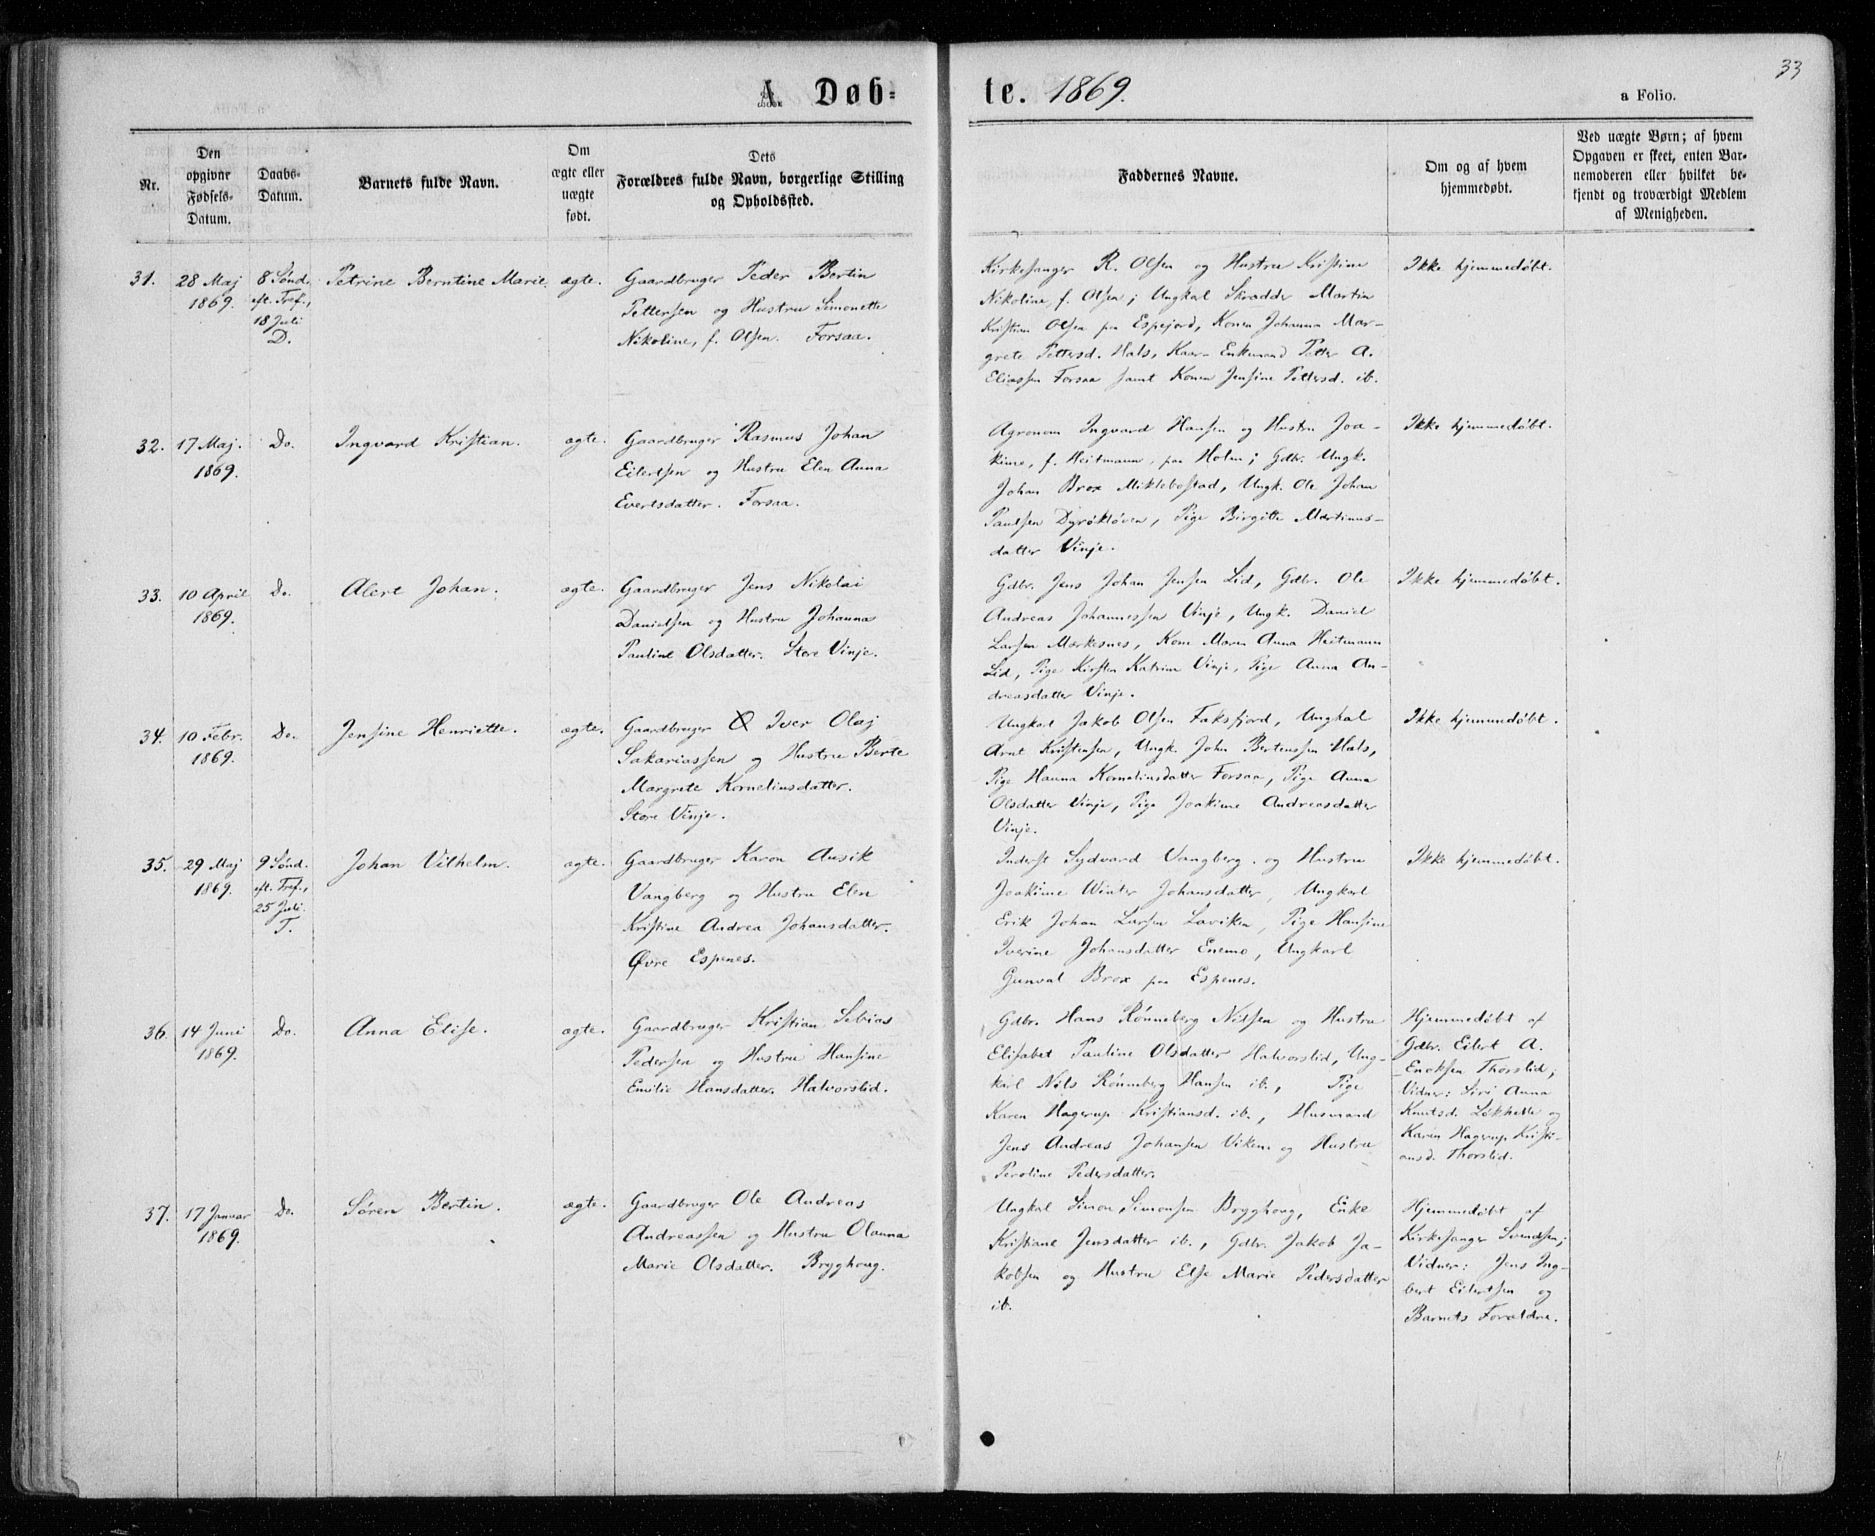 33
A Døb=
te. 1869.
a Folio.
Nr.
Den opgivne Fødsels-Datum.
Daabs-Datum.
Barnets fulde Navn.
Om ægte eller uægte født.
Dets
Forældres fulde Navn, borgerlige Stilling
og Opholdssted.
Faddernes Navne.
Om og af hvem
hjemmedøbt.
Ved uægte Børn; af hvem
Opgaven er skeet, enten Bar-
nemoderen eller hvilket be-
kjendt og troværdigt Medlem
af Menigheden.
31.
28 Maj
1869.
8 Sønd.
eft. Tref.,
18 Juli
D.
Petrine Berntine Marie.
ægte.
Gaardbruger Peder Bertin
Pettersen og Hustru Simonette
Nikoline, f. Olsen. Forsaa.
Kirkesanger R. Olsen og Hustru Kristine
Nikoline, f. Olsen; Ungkal Skrædder Martin
Kristian Olsen paa Espejord, Konen Johanna Mar-
grete Pettersd. Hals, Kaar- Enkemand Petter A.
Eliassen Forsaa samt Konen Jensine Pettersd. ib.
Ikke hjemmedøbt.
32.
17 Maj.
1869.
Do.
Ingvard Kristian.
ægte.
Gaardbruger Rasmus Johan
Eilertsen og Hustru Elen Anna
Evertsdatter. Forsaa.
Agronom Ingvard Hansen og Hustru Joa-
kime, f. Heitmann, paa Holm; Gdbr. Ungk.
Johan Brox Miklebostad, Ungk. Ole Johan
Paulsen Dyrøkløven, Pige Birgitte Martinus-
datter Vinje.
Ikke hjemmedøbt.
33.
10 April
1869.
Do.
Alert Johan.
ægte.
Gaardbruger Jens Nikolai
Danielsen og Hustru Johanna
Pauline Olsdatter. Store Vinje.
Gdbr. Jens Johan Jensen Lid, Gdbr. Ole
Andreas Johannessen Vinje, Ungk. Daniel
Larsen Mærkesnes, Kone Maren Anna Heitmann
Lid, Pige Kirsten Katrine Vinje, Pige Anna An-
dreasdatter Vinje.
Ikke hjemmedøbt.
34.
10 Febr.
1869.
Do.
Jensine Henriette.
ægte.
Gaardbruger Iver Olaj
Sakariassen og Hustru Berte
Margrete Kornelinsdatter.
Store Vinje.
Ungkarl Jakob Olsen Faksfjord, Ungkal
Arnt Kristensen, Ungk. John Bertenssen Hals,
Pige Hanna Kornelinsdatter Forsaa, Pige Anna
Olsdatter Vinje, Pige Joakime Andreasdatter
Vinje.
Ikke hjemmedøbt.
35.
29 Maj
1869.
9 Sønd.
eft. Tref.,
25 Juli.
T.
Johan Vilhelm.
ægte.
Gaardbruger Karon Ausik
Vangberg og Hustru Elen
Kristine Andrea Johansdatter.
Øvre Espenes.
Inderst Sydvard Vangberg. og Hustru
Joakime Winter Johansdatter, Ungkarl
Erik Johan Larsen Laviken, Pige Hansine
Iverine Johansdatter Enemo, Ungkarl
Gunval Brox paa Espenes.
Ikke hjemmedøbt.
36.
14 Juni
1869.
Do.
Anna Elise.
ægte.
Gaardbruger Kristian Sebias
Pedersen og Hustru Hansine
Emilie Hansdatter. Halvorslid.
Gdbr. Hans Rønneberg Nilsen og Hustru
Elisabet Pauline Olsdatter Halvorslid, Ung-
karl Nils Rønneberg Hansen ib., Pige
Karen Hagerup Kristiansd. ib., Husmand
Jens Andreas Johansen Viken og Hustru
Peroline Pedersdatter.
Hjemmedøbt af
Gdbr. Eilert A.
Enoksen Thorslid;
Vidner: Siri Anna
Knutsd. Løkhelle og
Karen Hagerup Kristi-
ansd. Thorslid.
37.
17 Januar
1869.
Do.
Søren Bertin.
ægte.
Gaardbruger Ole Andreas
Andreassen og Hustru Olanna
Marie Olsdatter. Brygghoug.
Ungkal Simon Simonsen Brygghoug, Enke
Kristiane Jensdatter ib., Gdbr. Jakob Ja-
kobsen og Hustru Else Marie Pedersdatter
ib.
Hjemmedøbt af
Kirkesanger Svendsen;
Vidner: Jens Ing-
bert Eilertsen og
Barnets Forældre.